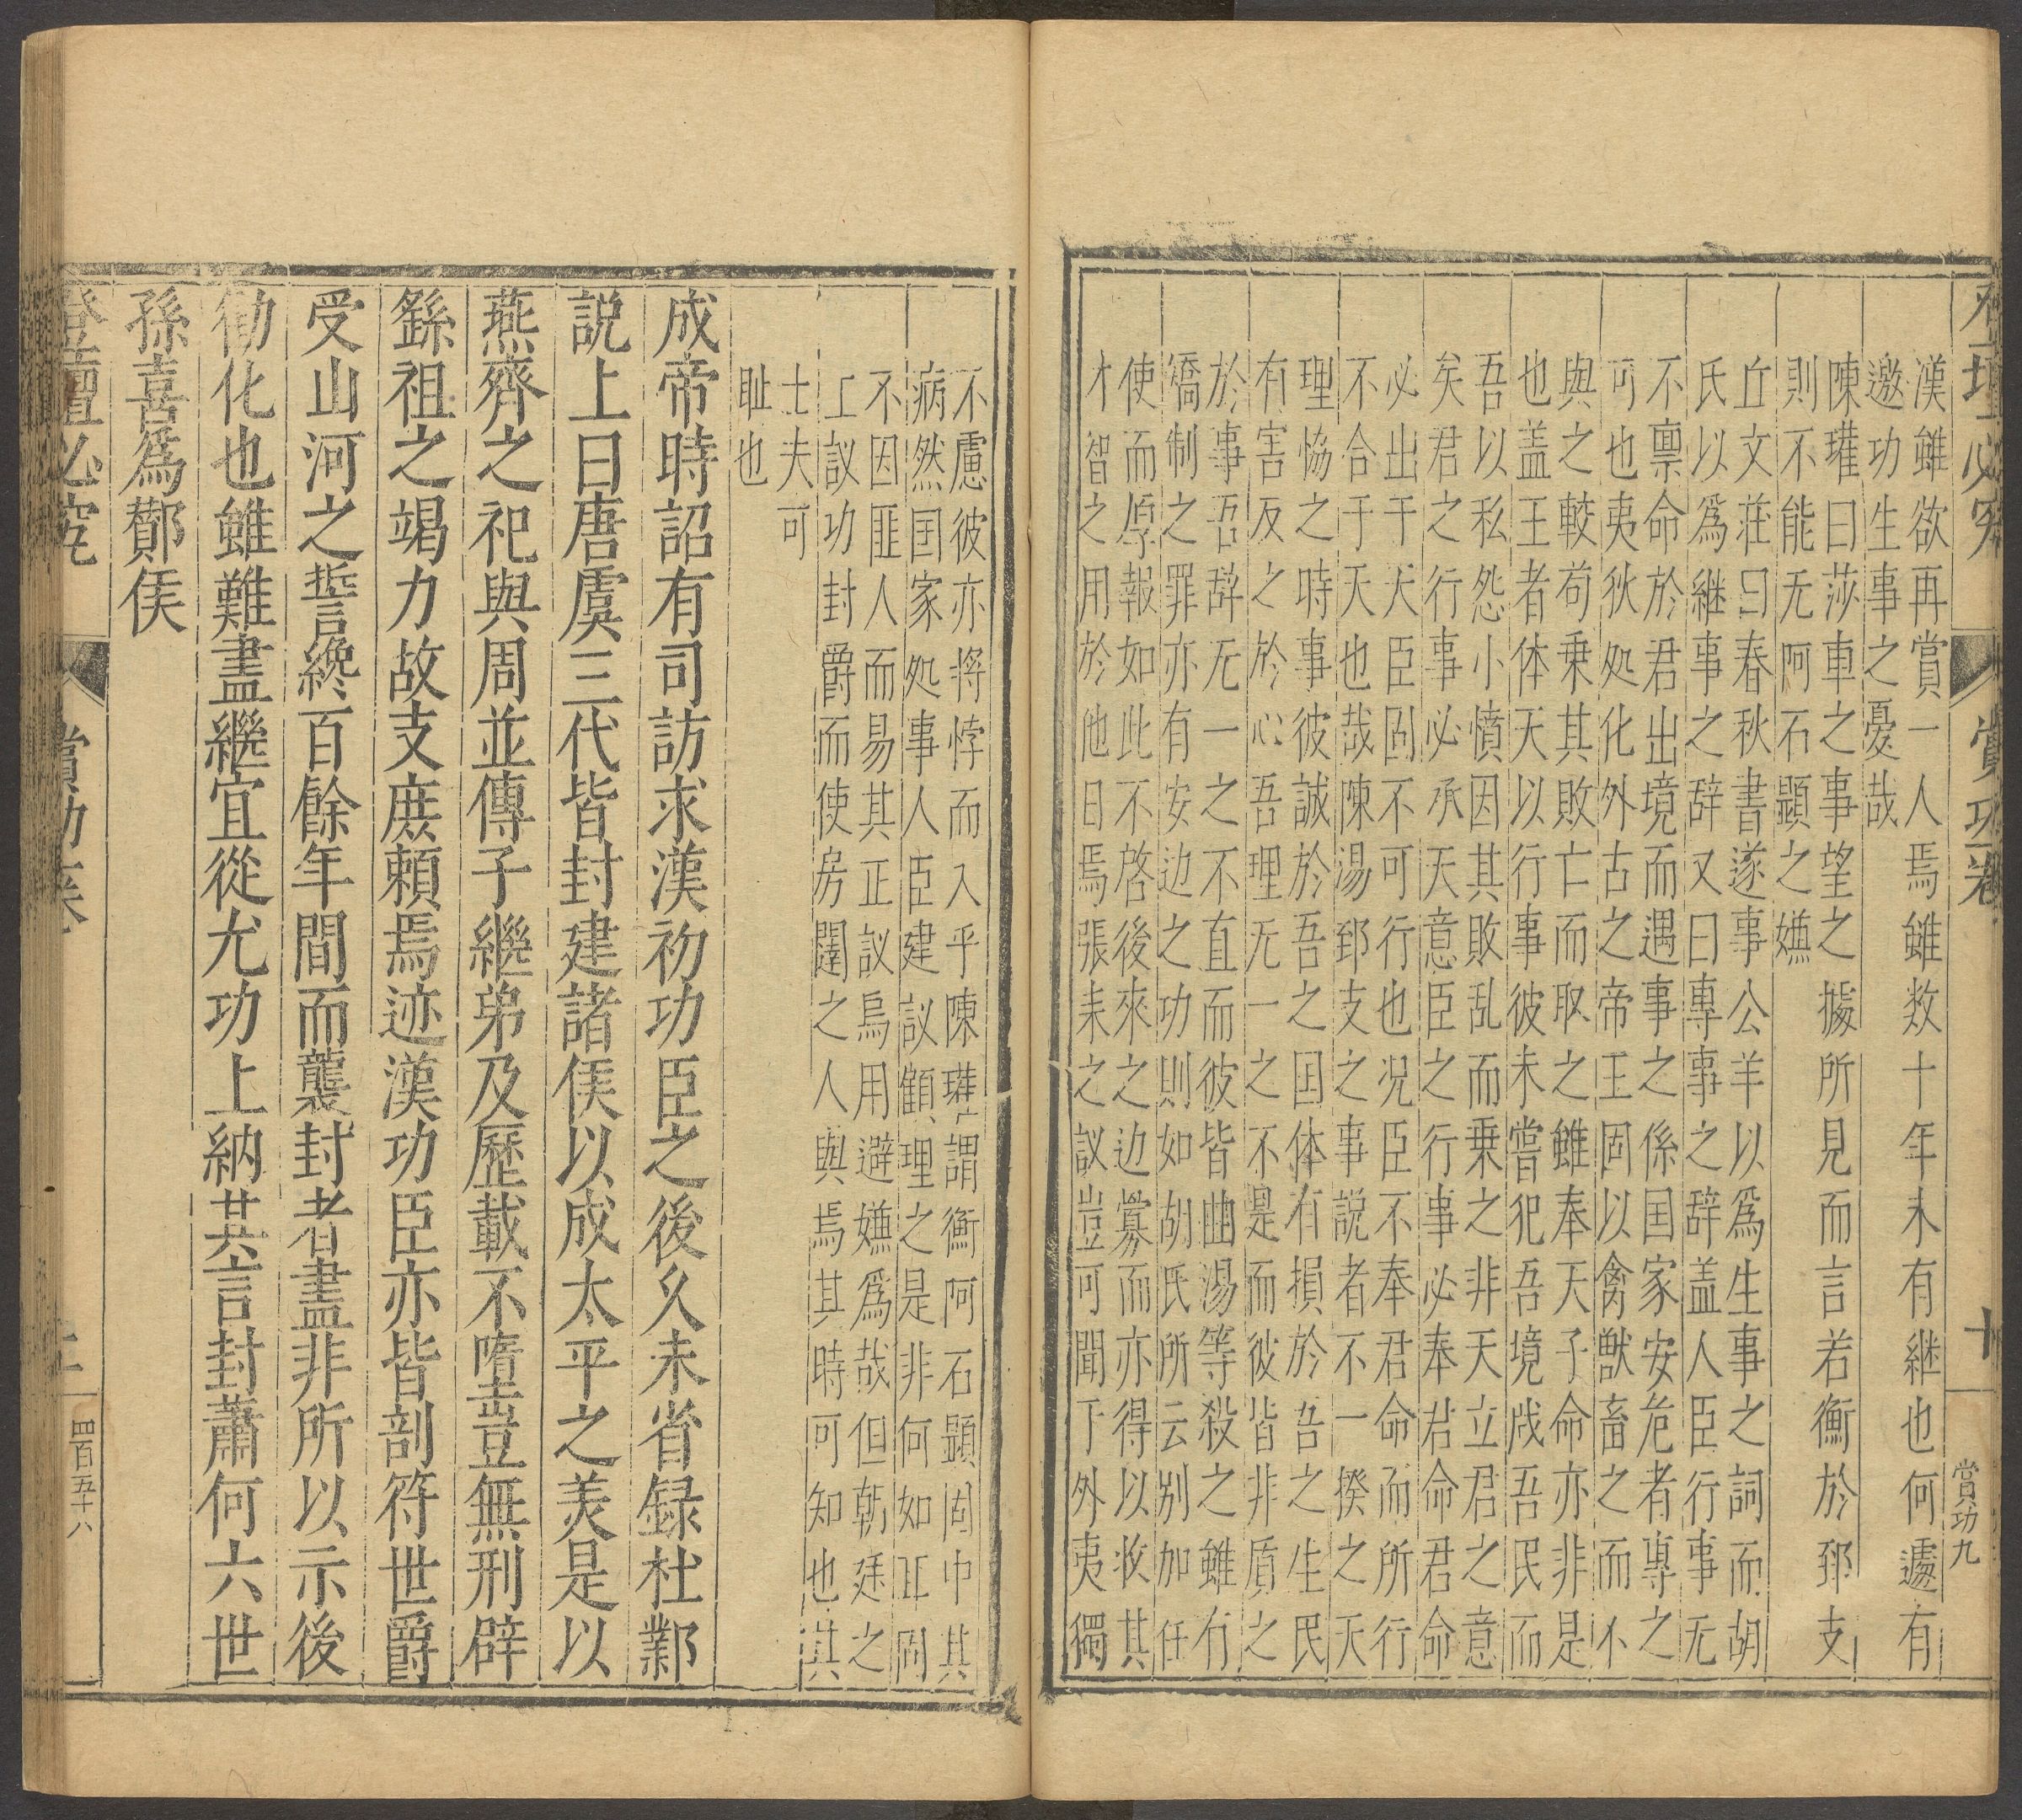 登壇必究 賞功卷 十 賞功九
漢雖欲再賞一人焉雖数十年未有継也何遽有
邀功生事之憂哉
陳瓘曰莎車之事望之據所見而言若衡於郅支
則不能无阿石顯之嫌
丘文荘曰春秋書遂事公羊以爲生事之詞而胡
氏以爲継事之辞又曰專事之辞盖人臣行事无
不禀命於君出境而遇事之係囯家安危者專之
可也夷狄処化外古之帝王固以禽獣畜之而不
與之較苟乗其敗亡而取之雖奉天子命亦非是
也盖王者体天以行事彼未嘗犯吾境戕吾民而
吾以私怨小憤因其敗乱而乗之非天立君之意
矣君之行事必承天意臣之行事必奉君命君命
必出于天臣固不可行也况臣不奉君命而所行
不合于天也哉陳湯郅支之事説者不一揆之天
理恊之時事彼誠於吾之囯体有損於吾之生民
有害反之於心吾理无一之不是而彼皆非質之
於事吾辞无一之不直而彼皆曲湯等殺之雖有
矯制之罪亦有安边之功則如胡氏所云别加任
使而厚報如此不啓後來之边釁而亦得以收其
才智之用於他日焉張耒之議豈可聞于外夷獨
不慮彼亦将悖而入乎陳瓘謂衡阿石顯固中其
病然囯家処事人臣建議顧理之是非何如耳固
不因匪人而易其正議烏用避嫌爲哉但朝廷之
上議功封爵而使房闥之人與焉其時可知也其
士夫可
耻也
成帝時詔有司訪求漢初功臣之後久未省録杜鄴
説上曰唐虞三代皆封建諸侯以成太平之美是以
燕齊之祀與周並傳子繼弟及歷載不墮豈無刑辟
繇祖之竭力故支庶賴焉迹漢功臣亦皆剖符世爵
受山河之誓纔百餘年間而襲封者盡非所以示後
勸化也雖難盡繼宜從尤功上納其言封蕭何六世
孫喜爲酇侯
登壇必究 賞功卷 四百五十八